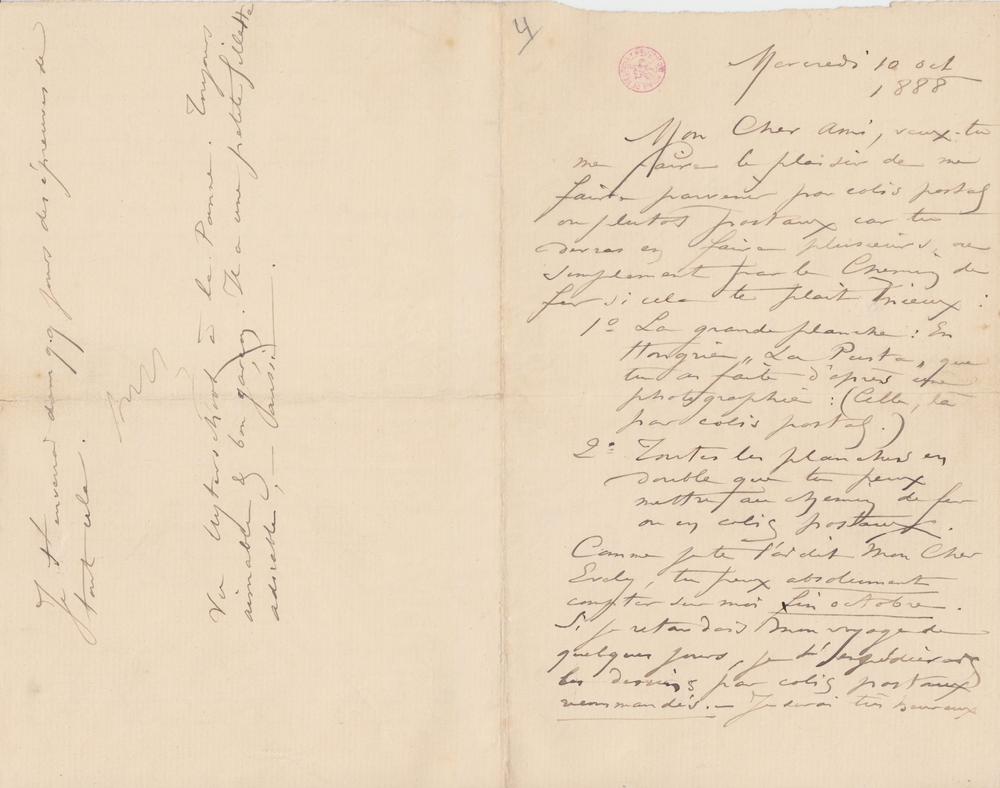 4
Mercredi 10 oct
1888
Mon Cher Ami, veux-tu
me faire le plaisir de me
faire parvenir par colis postal
ou plutot postaux car tu
devras en faire plusieurs, ou
simplement par le Chemin de
fer si cela te plait mieux :
1º La grande planche : En
Hongrie „ La Pusta „ que
tu as faite d'après une
photographie : (Celle, là
par colis postal.)
2º Toutes les planches en
double que tu peux
mettre au chemin de fer
ou en colis postaux.
Comme je te l'ai dit Mon Cher
Evely, tu peux absolument
compter sur moi fin octobre.
Si je retardais mon voyage de
quelques jours, je t'expédierais
les dessins par colis postaux
recommandés. — Je serai très heureux
Je t'enverrai dans qq jours des épreuves de
tout cela.
Vu Uytterschaut à la Panne. Toujours
aimable & bon garçon. Il a une petite fillette
adorable,